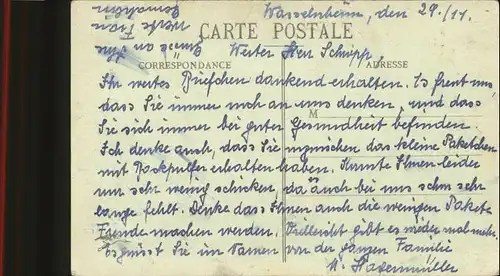 Wasselnheim, den 29./11.
CARTE POSTALE
Werter Herr Schnipp,
CORRESPONDANCE
ADRESSE
Ihr wertes Briefchen dankend erhalten. Es freut uns,
dass Sie immer noch an uns denken, und dass
M
Sie sich immer bei guter Gesundheit befinden.
Ich denke auch, dass Sie inzwischen das kleine Paketchen
mit Backpulfer erhalten haben. Konnte Ihnen leider
nur sehr wenig schicken, da auch bei uns schon sehr
lange fehlt. Denke dass Ihnen auch die wenigen Pakete
Freude machen werden. Vielleicht gibt es wieder mal mehr.
Es grüsst Sie im Namen von der ganzen Familie